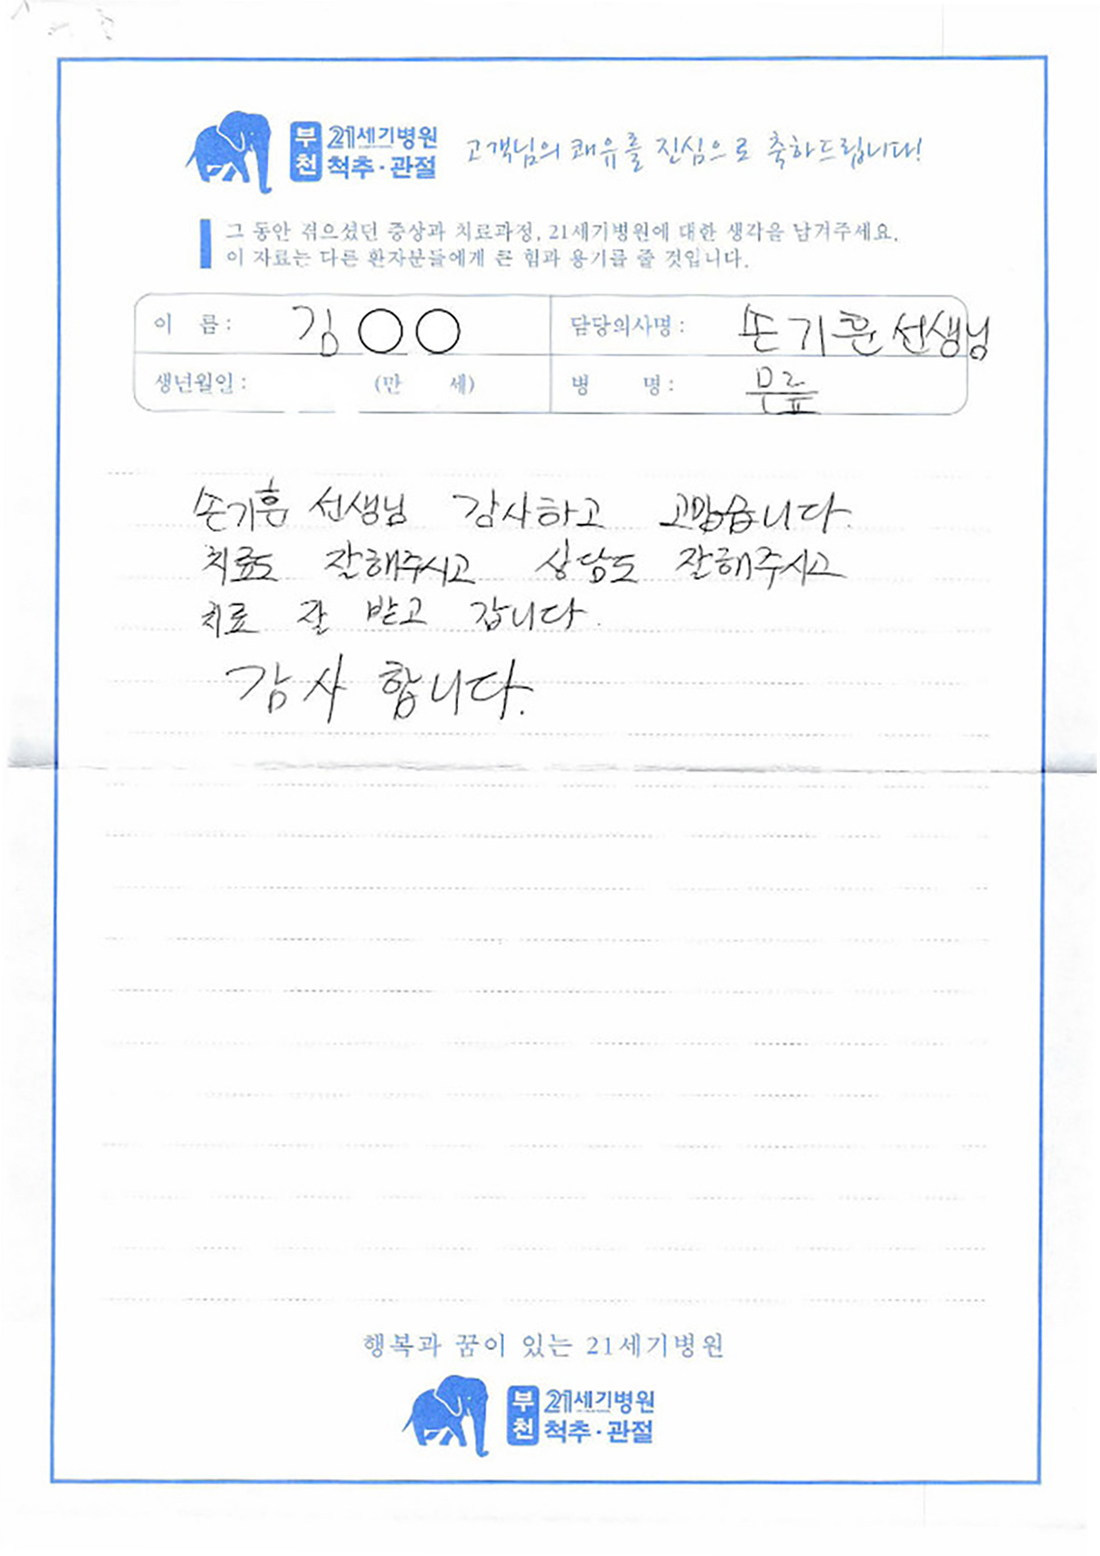 부천 21세기병원 척추·관절 고객님의 쾌유를 진심으로 축하드립니다!
그 동안 겪으셨던 증상과 치료과정, 21세기병원에 대한 생각을 남겨주세요.
이 자료는 다른 환자분들에게 큰 힘과 용기를 줄 것입니다.
이 름 : 김○○ 담당의사명 : 손기훈 선생님
생년월일 : (만 세) 병 명 : 무릎
손기훈 선생님 감사하고 고맙습니다.
치료도 잘해주시고 상담도 잘해주시고
치료 잘 받고 갑니다.
감사 합니다.
행복과 꿈이 있는 21세기병원
부천 21세기병원 척추·관절